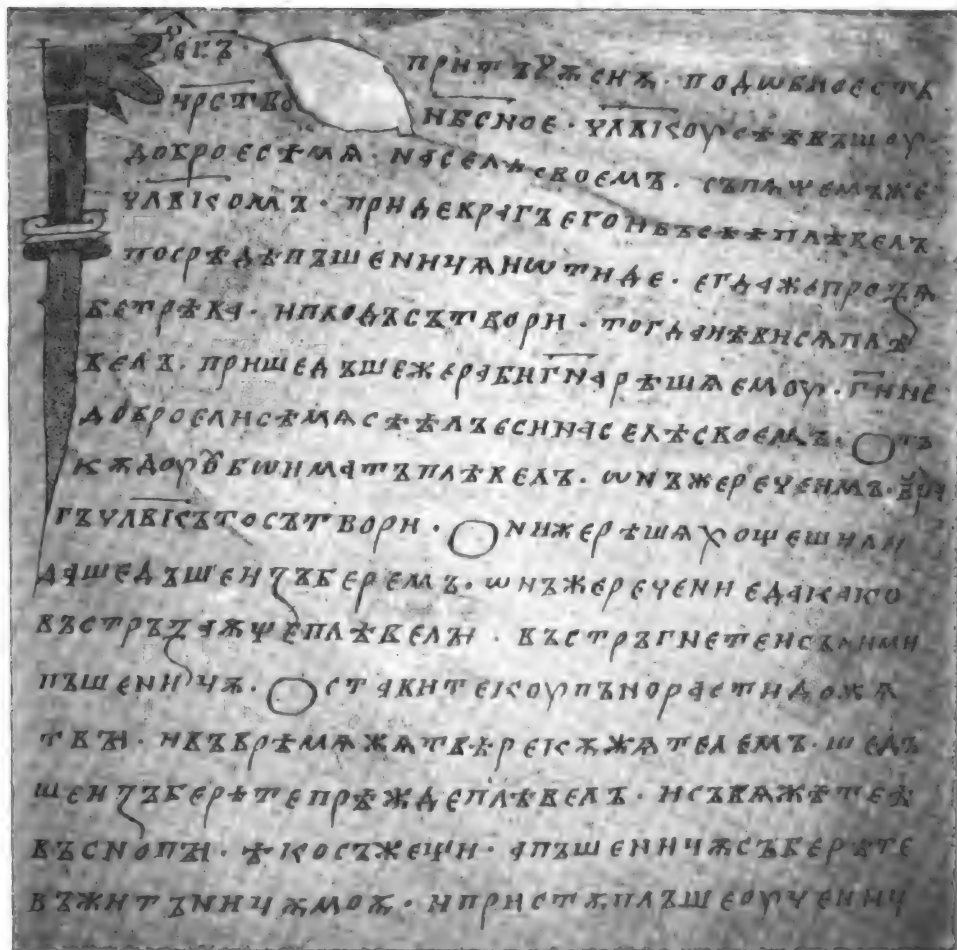 ег҃ъ · притъчѫ сиѭ · подѡбно естъ
цр҃ство нб҃сное · чл҃вкоу сѣѣвъшоу
доброе сѣмѧ · на селѣ своемъ · съпѧщемъ же
чл҃вкомъ · приде врагъ его и въсѣѣ плѣвелъ
посрѣдѣ пъшеницѧ и ѡтиде · егда же прозѧ
бе трѣва · и плодъ сътвори · тогда и ѣви сѧ плѣ
велъ · пришедъше же раби г҃и на рѣшѧ емоу · г҃и не
доброе ли сѣмѧ сѣѣлъ еси на селѣ своемъ · Отъ
кѫдоу ѹбѡ иматъ плѣвелъ · ѡнъ же рече имъ · вра
гъ чл҃вкъ то сътвори · Они же рѣшѧ хощеши ли
да шедъше изъберемъ · ѡнъ же рече ни еда како
въстръзаѭще плѣвелꙑ · въстръгнете и съ ними
пъшеницѫ · Оставите коупьно расти до жѧ
твꙑ · и въ врѣмѧ жѧтвѣ рекѫ жѧтелемъ · шедъ
ше изъберѣте прѣжде плѣвелъ · и съвѧжѣте ѣ
въ снопꙑ · ѣко съжещи · а пъшеницѫ съберѣте
въ житъницѫ моѭ · и пристѫплъше оученици